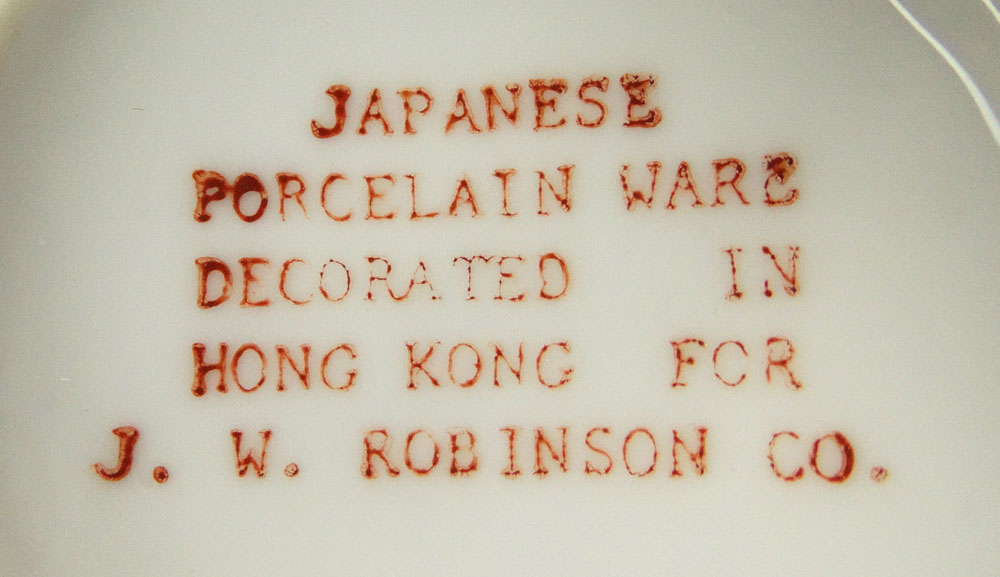 JAPANESE
PORCELAIN WARE
DECORATED IN
HONG KONG FOR
J. W. ROBINSON CO.